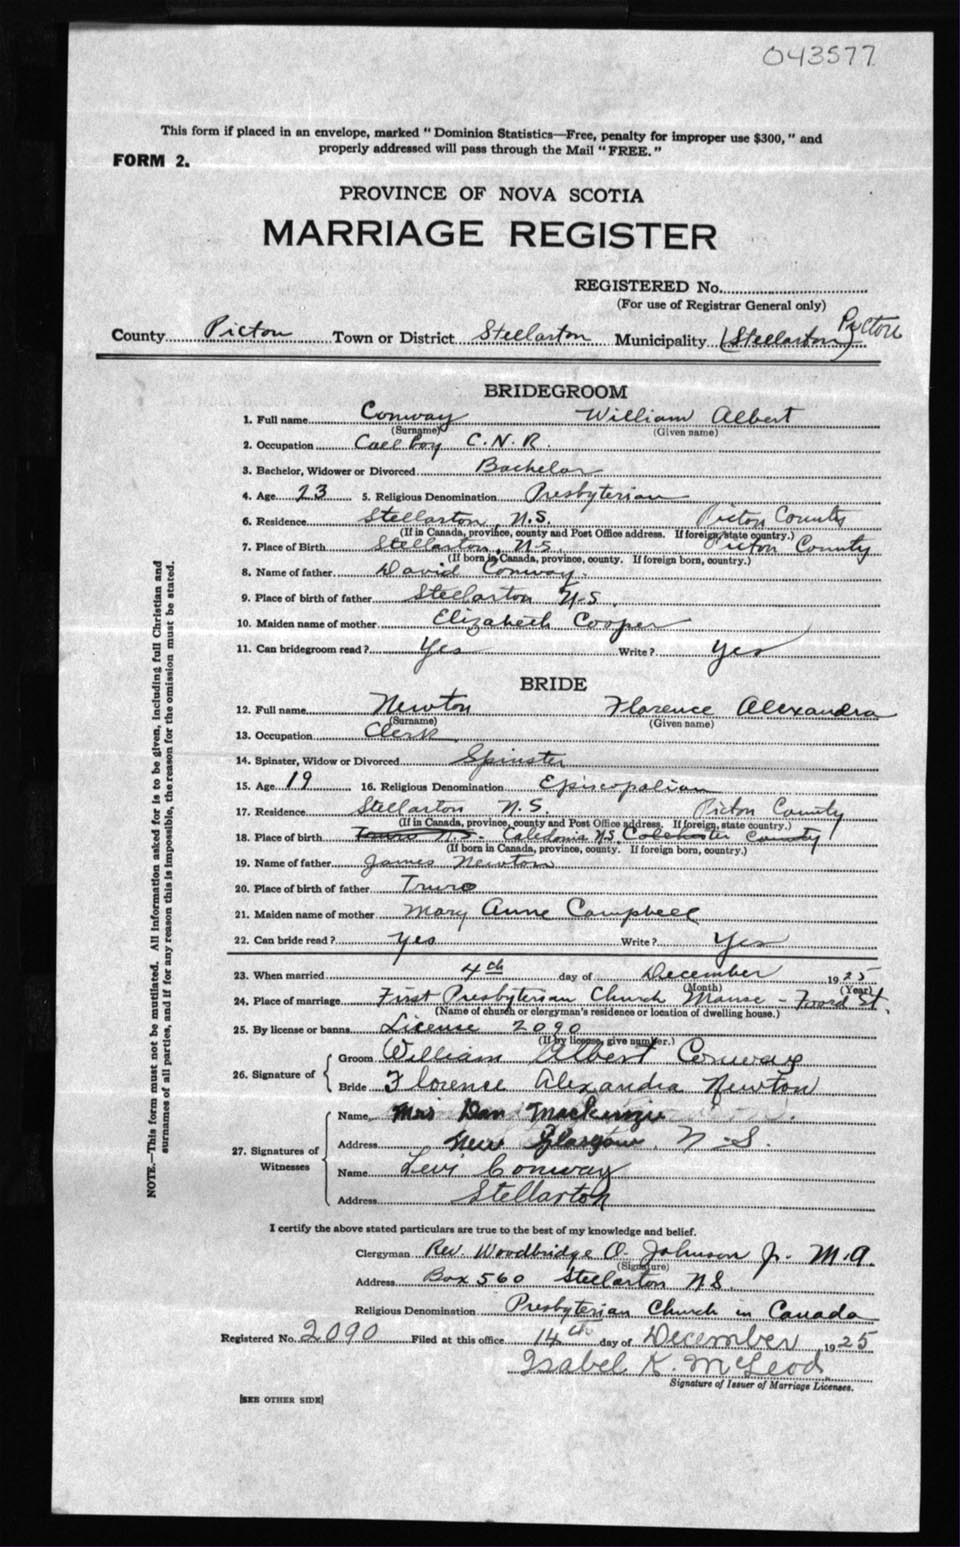 043577
This form if placed in an envelope, marked "Dominion Statistics—Free, penalty for improper use $300," and
properly addressed will pass through the Mail "FREE."
FORM 2.
PROVINCE OF NOVA SCOTIA
MARRIAGE REGISTER
REGISTERED No.
(For use of Registrar General only)
County Pictou Town or District Stellarton Municipality (Stellarton) Pictou
BRIDEGROOM
1. Full name Conway William Albert
(Surname) (Given name)
2. Occupation Call boy C.N.R.
3. Bachelor, Widower or Divorced Bachelor
4. Age 23 5. Religious Denomination Presbyterian
6. Residence Stellarton, N.S. Pictou County
(If in Canada, province, county and Post Office address. If foreign, state country.)
7. Place of Birth Stellarton, N.S. Pictou County
(If born in Canada, province, county. If foreign born, country.)
8. Name of father David Conway.
9. Place of birth of father Stellarton N.S.
10. Maiden name of mother Elizabeth Cooper
11. Can bridegroom read? Yes Write? Yes
BRIDE
12. Full name Newton Florence Alexandra
(Surname) (Given name)
13. Occupation Clerk
14. Spinster, Widow or Divorced Spinster
15. Age 19 16. Religious Denomination Episcopalian
17. Residence Stellarton N.S. Pictou County
(If in Canada, province, county and Post Office address. If foreign, state country.)
18. Place of birth Truro N.S. Caledonia N.S. Colchester County
(If born in Canada, province, county. If foreign born, country.)
19. Name of father James Newton
20. Place of birth of father Truro
21. Maiden name of mother Mary Anne Campbell
22. Can bride read? Yes Write? Yes
23. When married 4th day of December 1925
(Month) (Year)
24. Place of marriage First Presbyterian Church Manse - Foord St.
(Name of church or clergyman's residence or location of dwelling house.)
25. By license or banns License 2090
(If by license, give number.)
26. Signature of
Groom William Albert Conway
Bride Florence Alexandra Newton
27. Signatures of Witnesses
Name Mrs Dan Mackenzie
Address New Glasgow, N-S.
Name Levi Conway
Address Stellarton
I certify the above stated particulars are true to the best of my knowledge and belief.
Clergyman Rev. Woodbridge O. Johnson Jr. M.A.
(Signature)
Address Box 560 Stellarton N.S.
Religious Denomination Presbyterian Church in Canada
Registered No. 2090 Filed at this office 14th day of December 1925
Isabel K. McLeod
Signature of Issuer of Marriage Licenses.
[SEE OTHER SIDE]
NOTE.—This form must not be mutilated. All information asked for is to be given, including full Christian and
surnames of all parties, and if for any reason this is impossible, the reason for the omission must be stated.